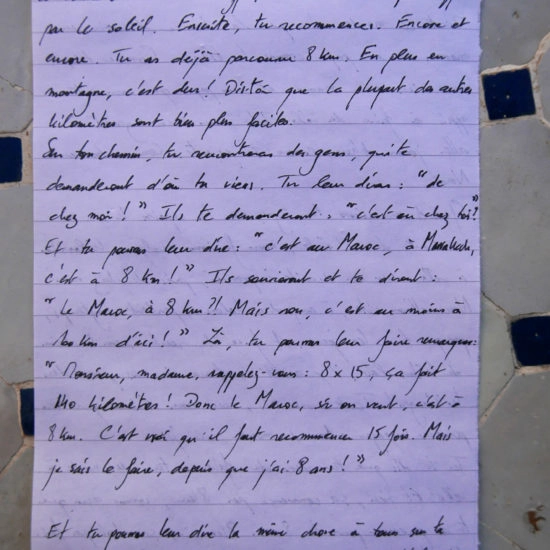 par le soleil. Ensuite, tu recommences. Encore et
encore. Tu as déjà parcouru 8 km. En plus en
montagne, c'est dur! Dis-toi que la plupart des autres
kilomètres sont bien plus faciles.
Sur ton chemin, tu rencontreras des gens, qui te
demanderont d'où tu viens. Tu leur diras : "de
chez moi ! " Ils te demanderont : "c'est où chez toi?"
Et tu pourras leur dire : "c'est au Maroc, à Marrakech,
c'est à 8 km ! " Ils souriront et te diront :
" Le Maroc, à 8 km?! Mais non, c'est au moins à
100 km d'ici ! " Là, tu pourras leur faire remarquer:
" Monsieur, madame, rappelez-vous : 8 x 15, ça fait
140 kilomètres ! Donc le Maroc, si on veut, c'est à
8 km. C'est vrai qu'il faut recommencer 15 fois. Mais
je sais le faire, depuis que j'ai 8 ans ! "
Et tu pourras leur dire la même chose à tous sur ta